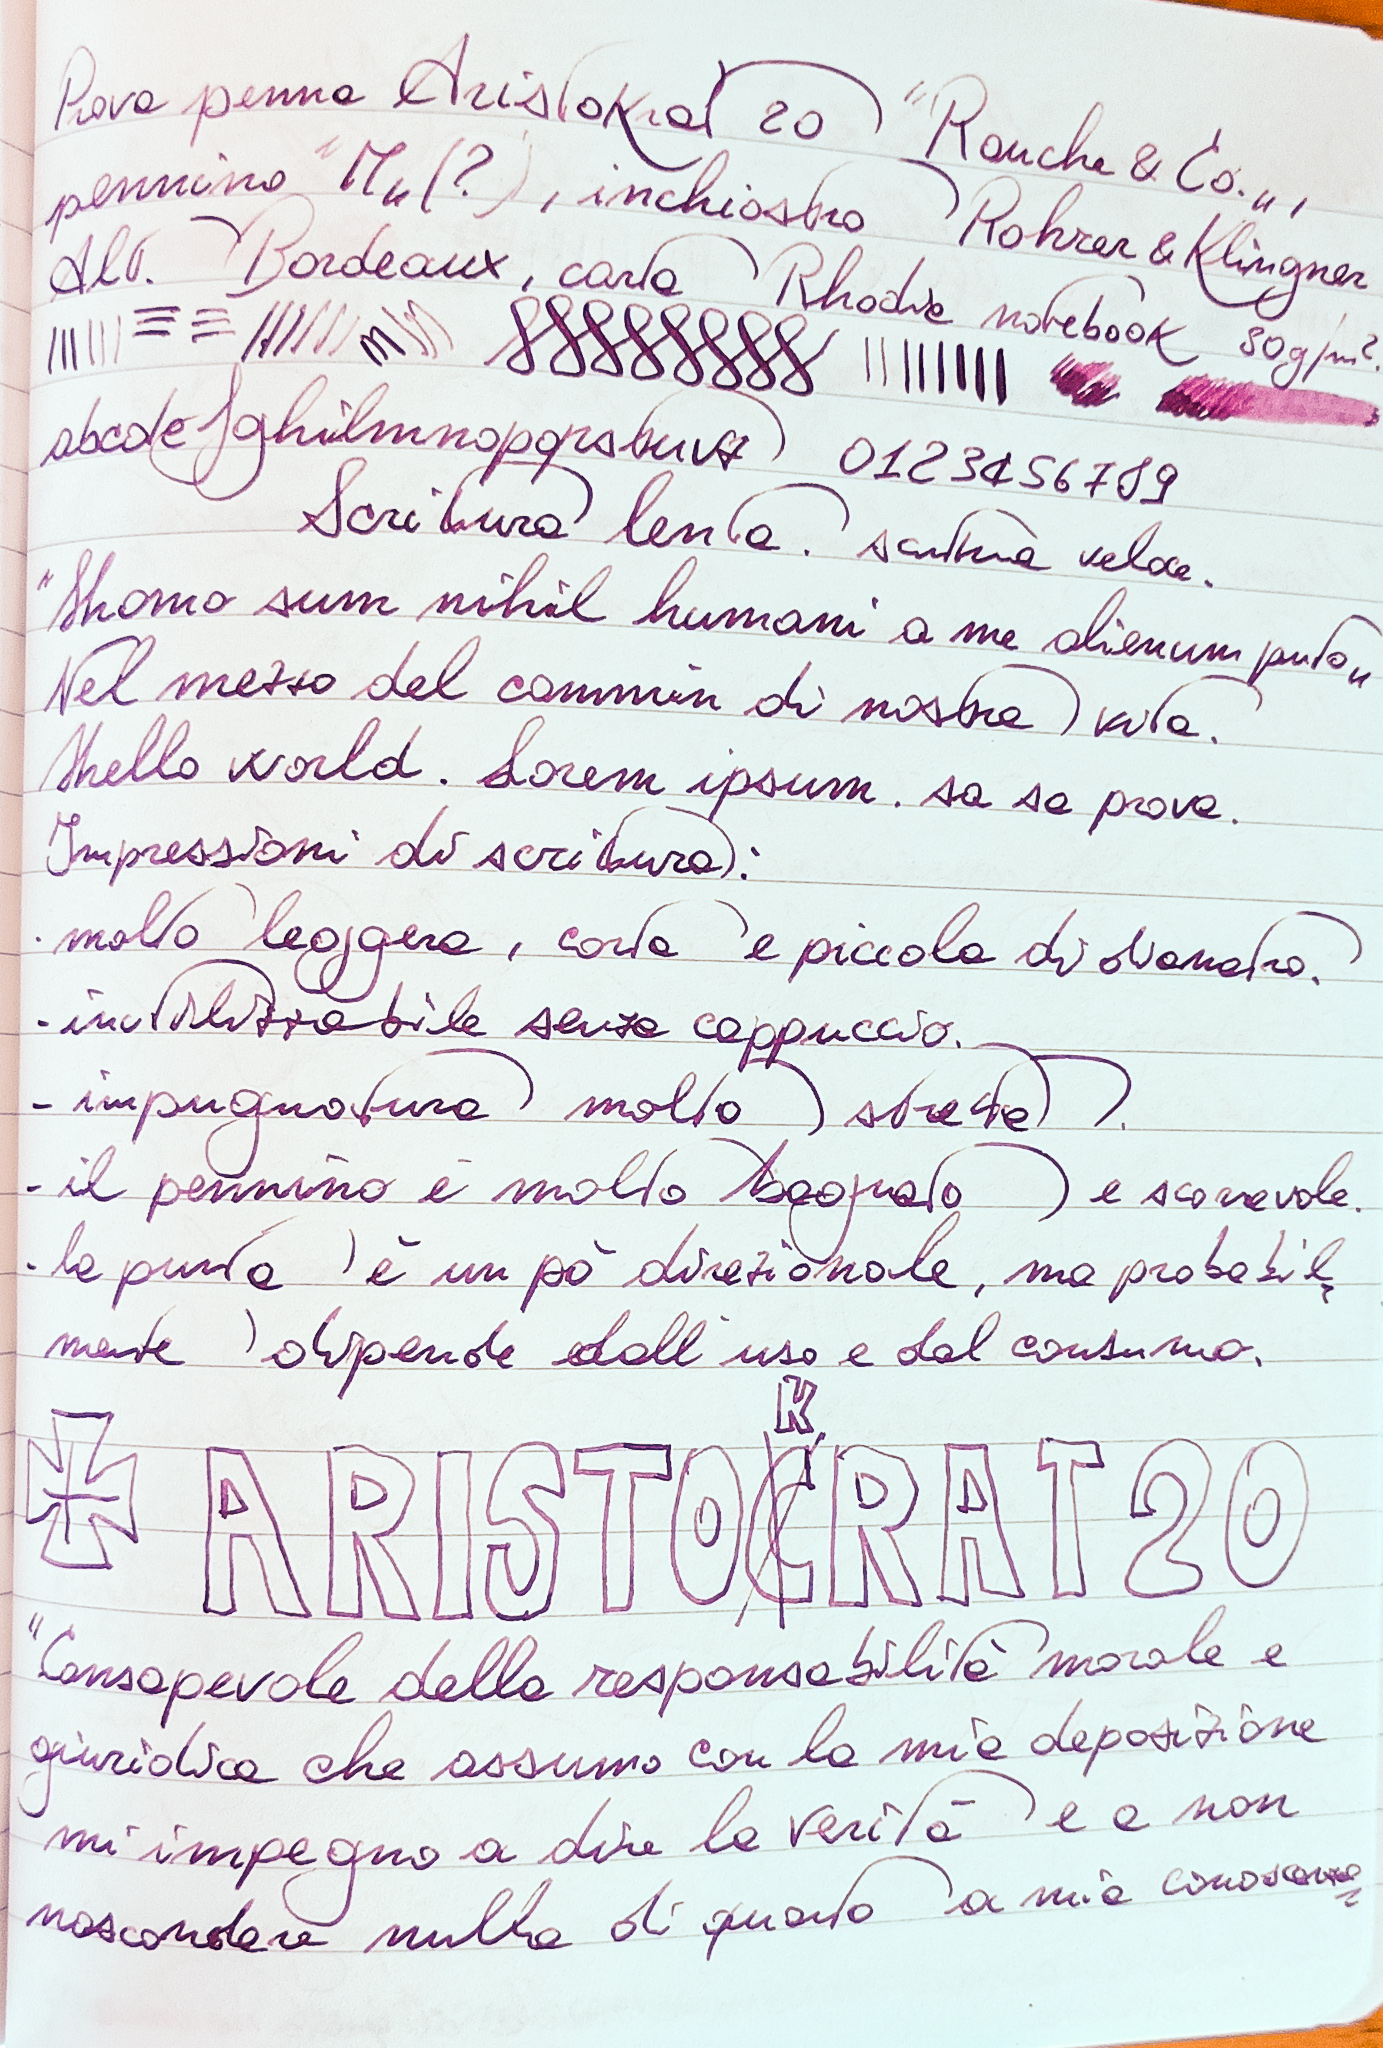 Prova penna Aristokrat 20 "Rauche & Co.",
pennino "M" (?), inchiostro Rohrer & Klingner
Alt. Bordeaux, carta Rhodia notebook 80g/m².
abcdefghilmnopqrstuvz 0123456789
Scrittura lenta. scrittura veloce.
"Homo sum nihil humani a me alienum puto"
Nel mezzo del cammin di nostra vita.
Hello world. Lorem ipsum. sa sa prova.
Impressioni di scrittura:
- molto leggera, corta e piccola di diametro.
- inutilizzabile senza cappuccio.
- impugnatura molto stretta.
- il pennino è molto bagnato e scorrevole.
- la punta è un pò direzionale, ma probabil=
mente dipende dall'uso e dal consumo.
K
ARISTOCRAT 20
"Consapevole della responsabilità morale e
giuridica che assumo con la mia deposizione
mi impegno a dire la verità e a non
nascondere nulla di quanto a mia conoscenza"